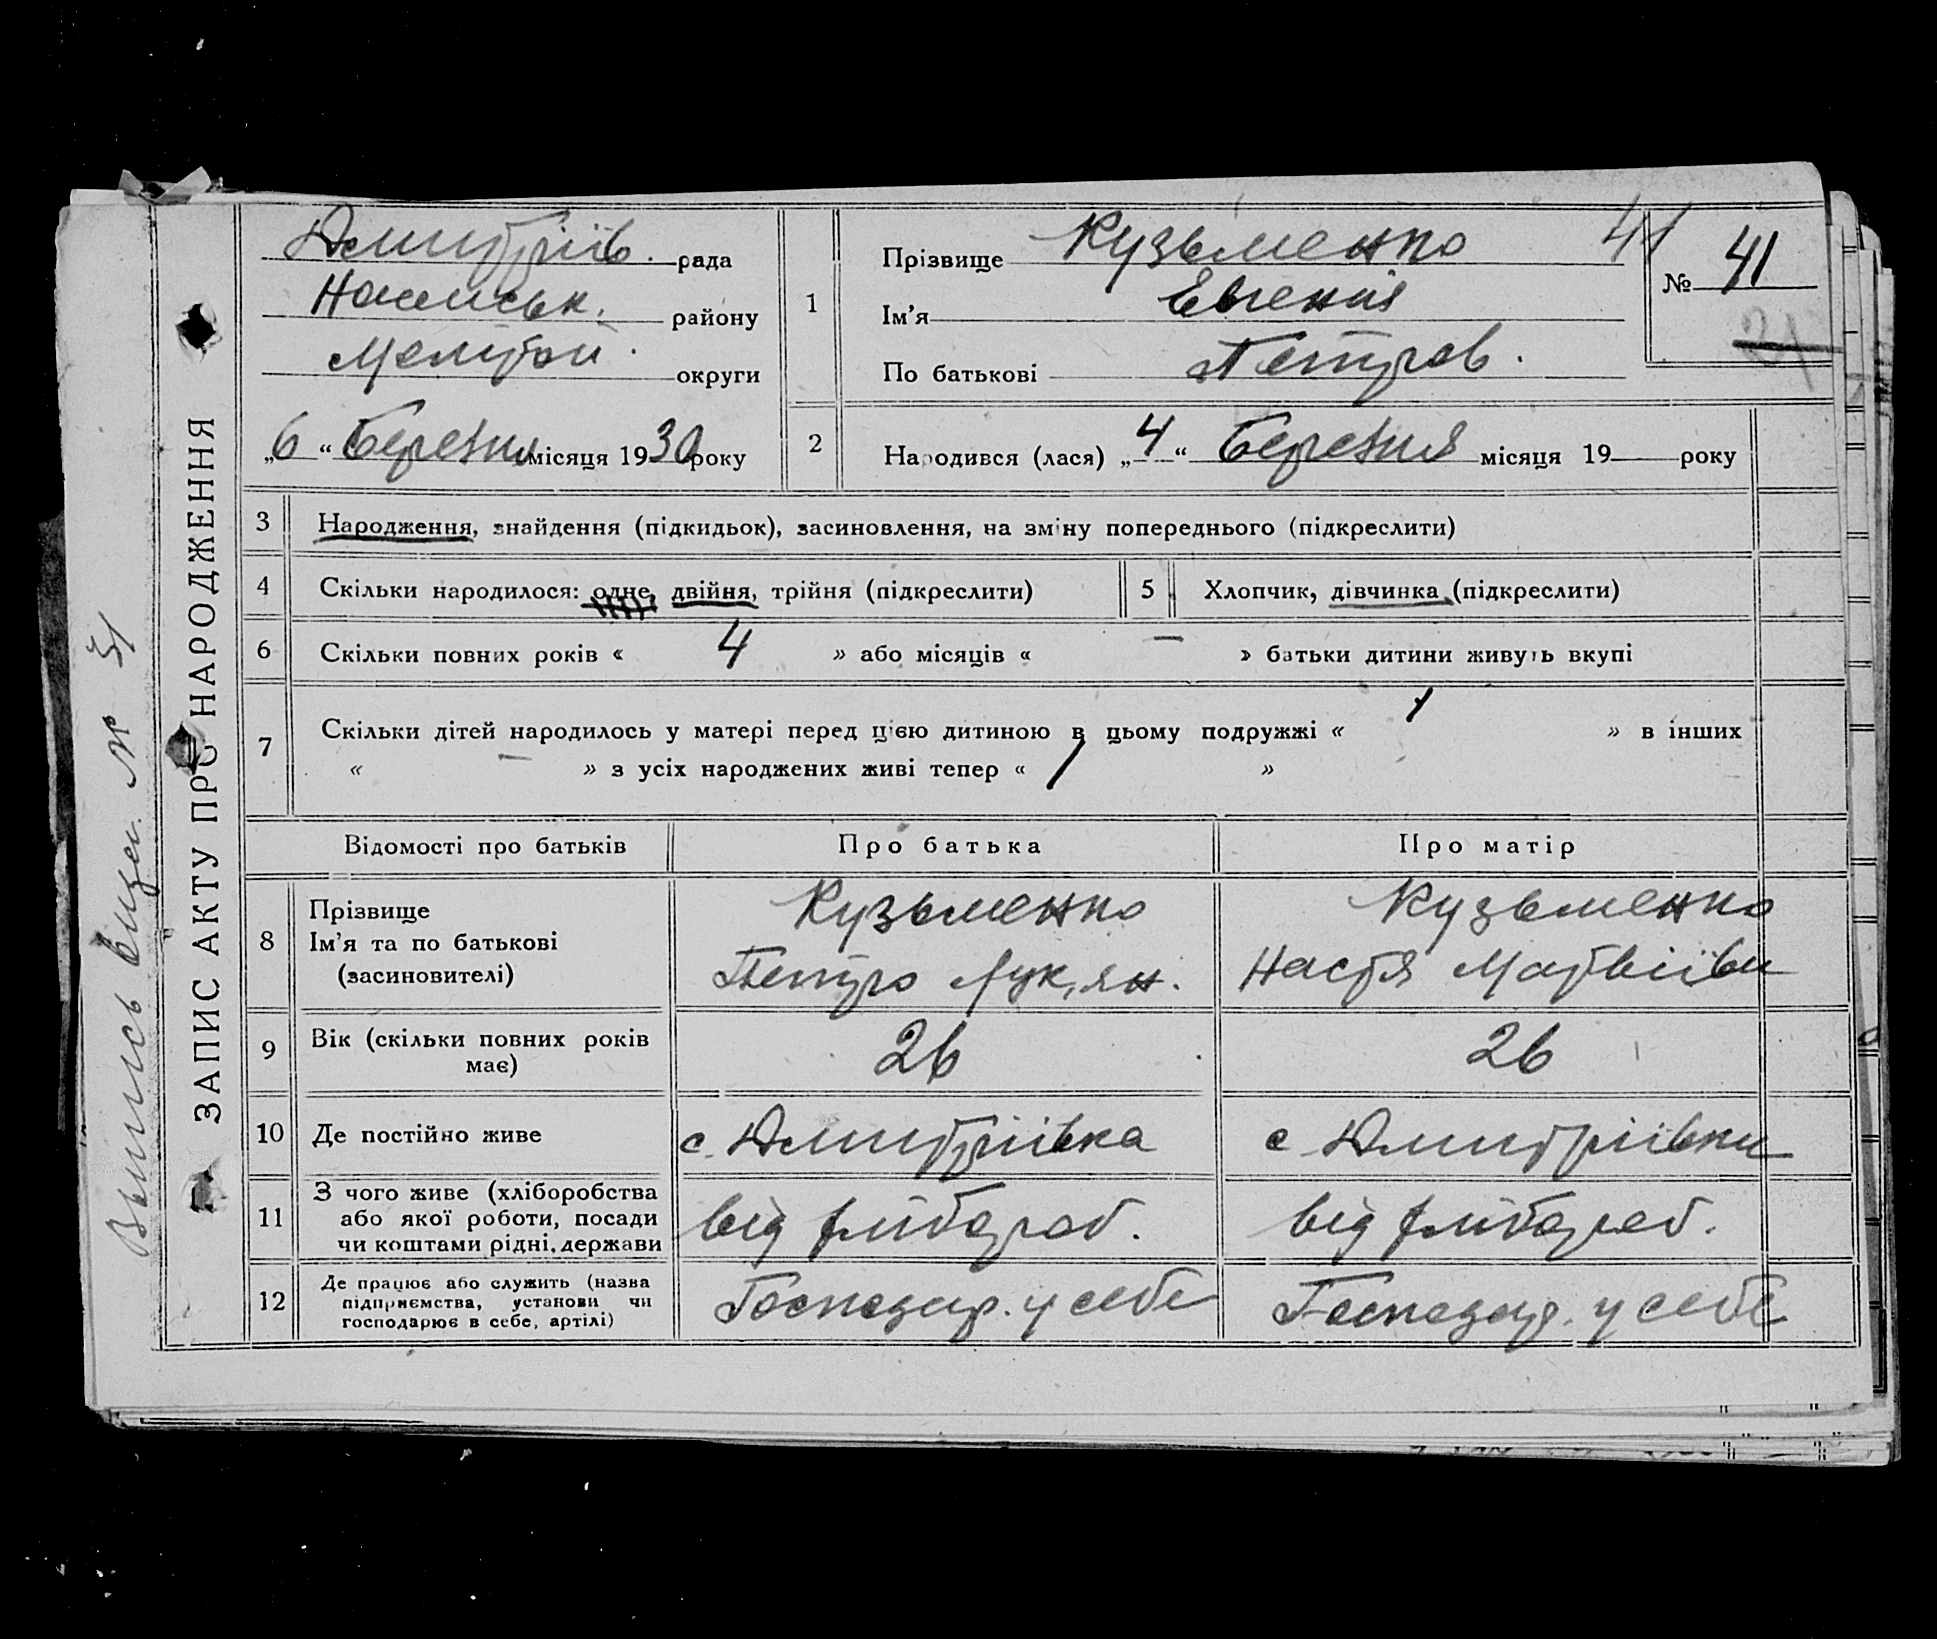 Дмитріїв. рада
району
Меліт. округи
„6“ Березня місяця 1930 року
1
Прізвище Кузьменко
Ім'я Евгенія
По батькові Петров.
41
№ 41
2
Народився (лася) „4“ Березня місяця 19 року
ЗАПИС АКТУ ПРО НАРОДЖЕННЯ
3 Народження, знайдення (підкидьок), засиновлення, на зміну попереднього (підкреслити)
4 Скільки народилося: одне, двійня, трійня (підкреслити)
5 Хлопчик, дівчинка (підкреслити)
6 Скільки повних років « 4 » або місяців « — » батьки дитини живуть вкупі
7 Скільки дітей народилось у матері перед цією дитиною в цьому подружжі « 1 » в інших
« — » з усіх народжених живі тепер « 1 »
Відомості про батьків
Про батька
Про матір
8
Прізвище
Ім'я та по батькові
(засиновителі)
Кузьменко
Петро Лук,ян.
Кузьменко
Настя Матвіївн
9
Вік (скільки повних років
має)
26
26
10 Де постійно живе
с. Дмитріївка
с. Дмитріївки
11
З чого живе (хліборобства
або якої роботи, посади
чи коштами рідні, держави
від хлібороб.
від хлібороб.
12
Де працює або служить (назва
підприємства, установи чи
господарює в себе, артілі)
Господар. у себе
Господар. у себе